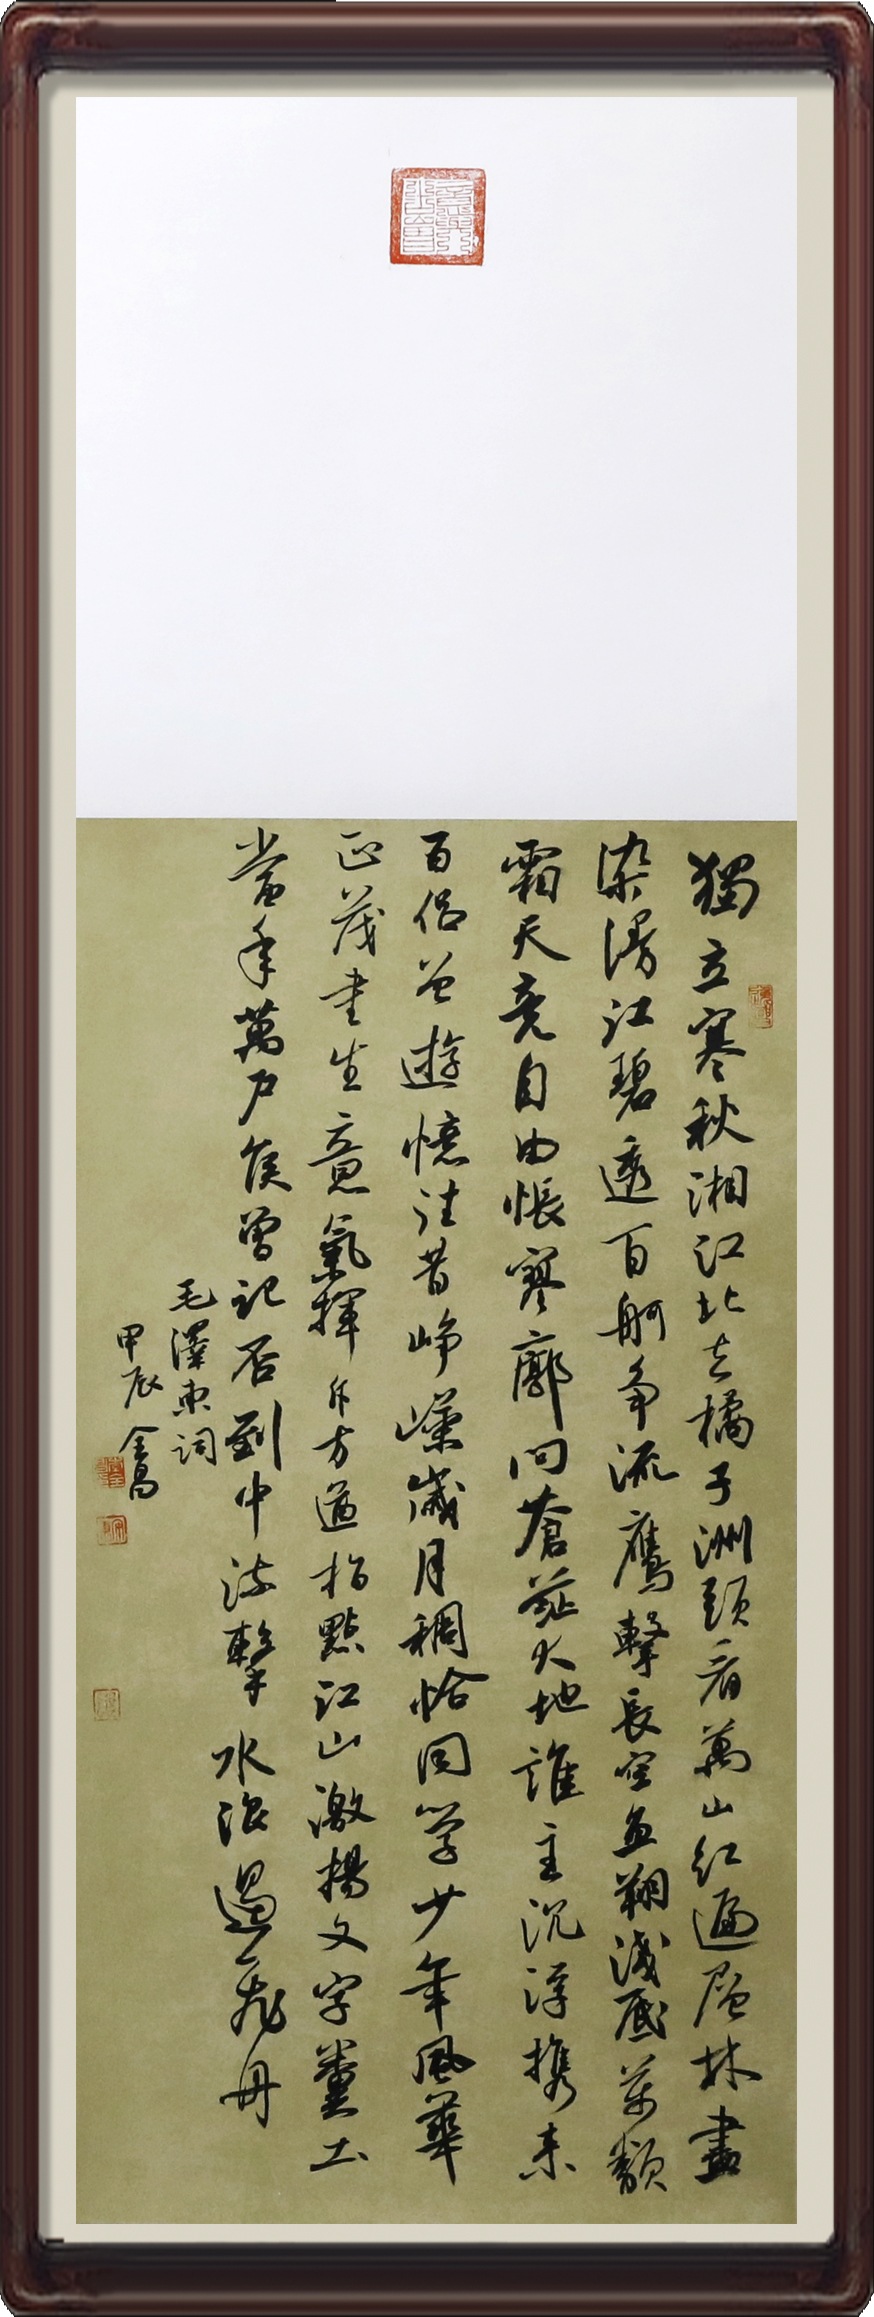 獨立寒秋湘江北去橘子洲頭看萬山紅遍層林盡
染漫江碧透百舸爭流鷹擊長空魚翔淺底萬類
霜天竞自由悵寥廓問蒼茫大地誰主沉浮攜來
百侶曾遊憶往昔崢嶸歲月稠恰同学少年風華
正茂書生意氣揮斥方遒指點江山激揚文字糞土
當年萬戶侯曾記否到中流擊水浪遏飛舟
毛澤東詞
甲辰